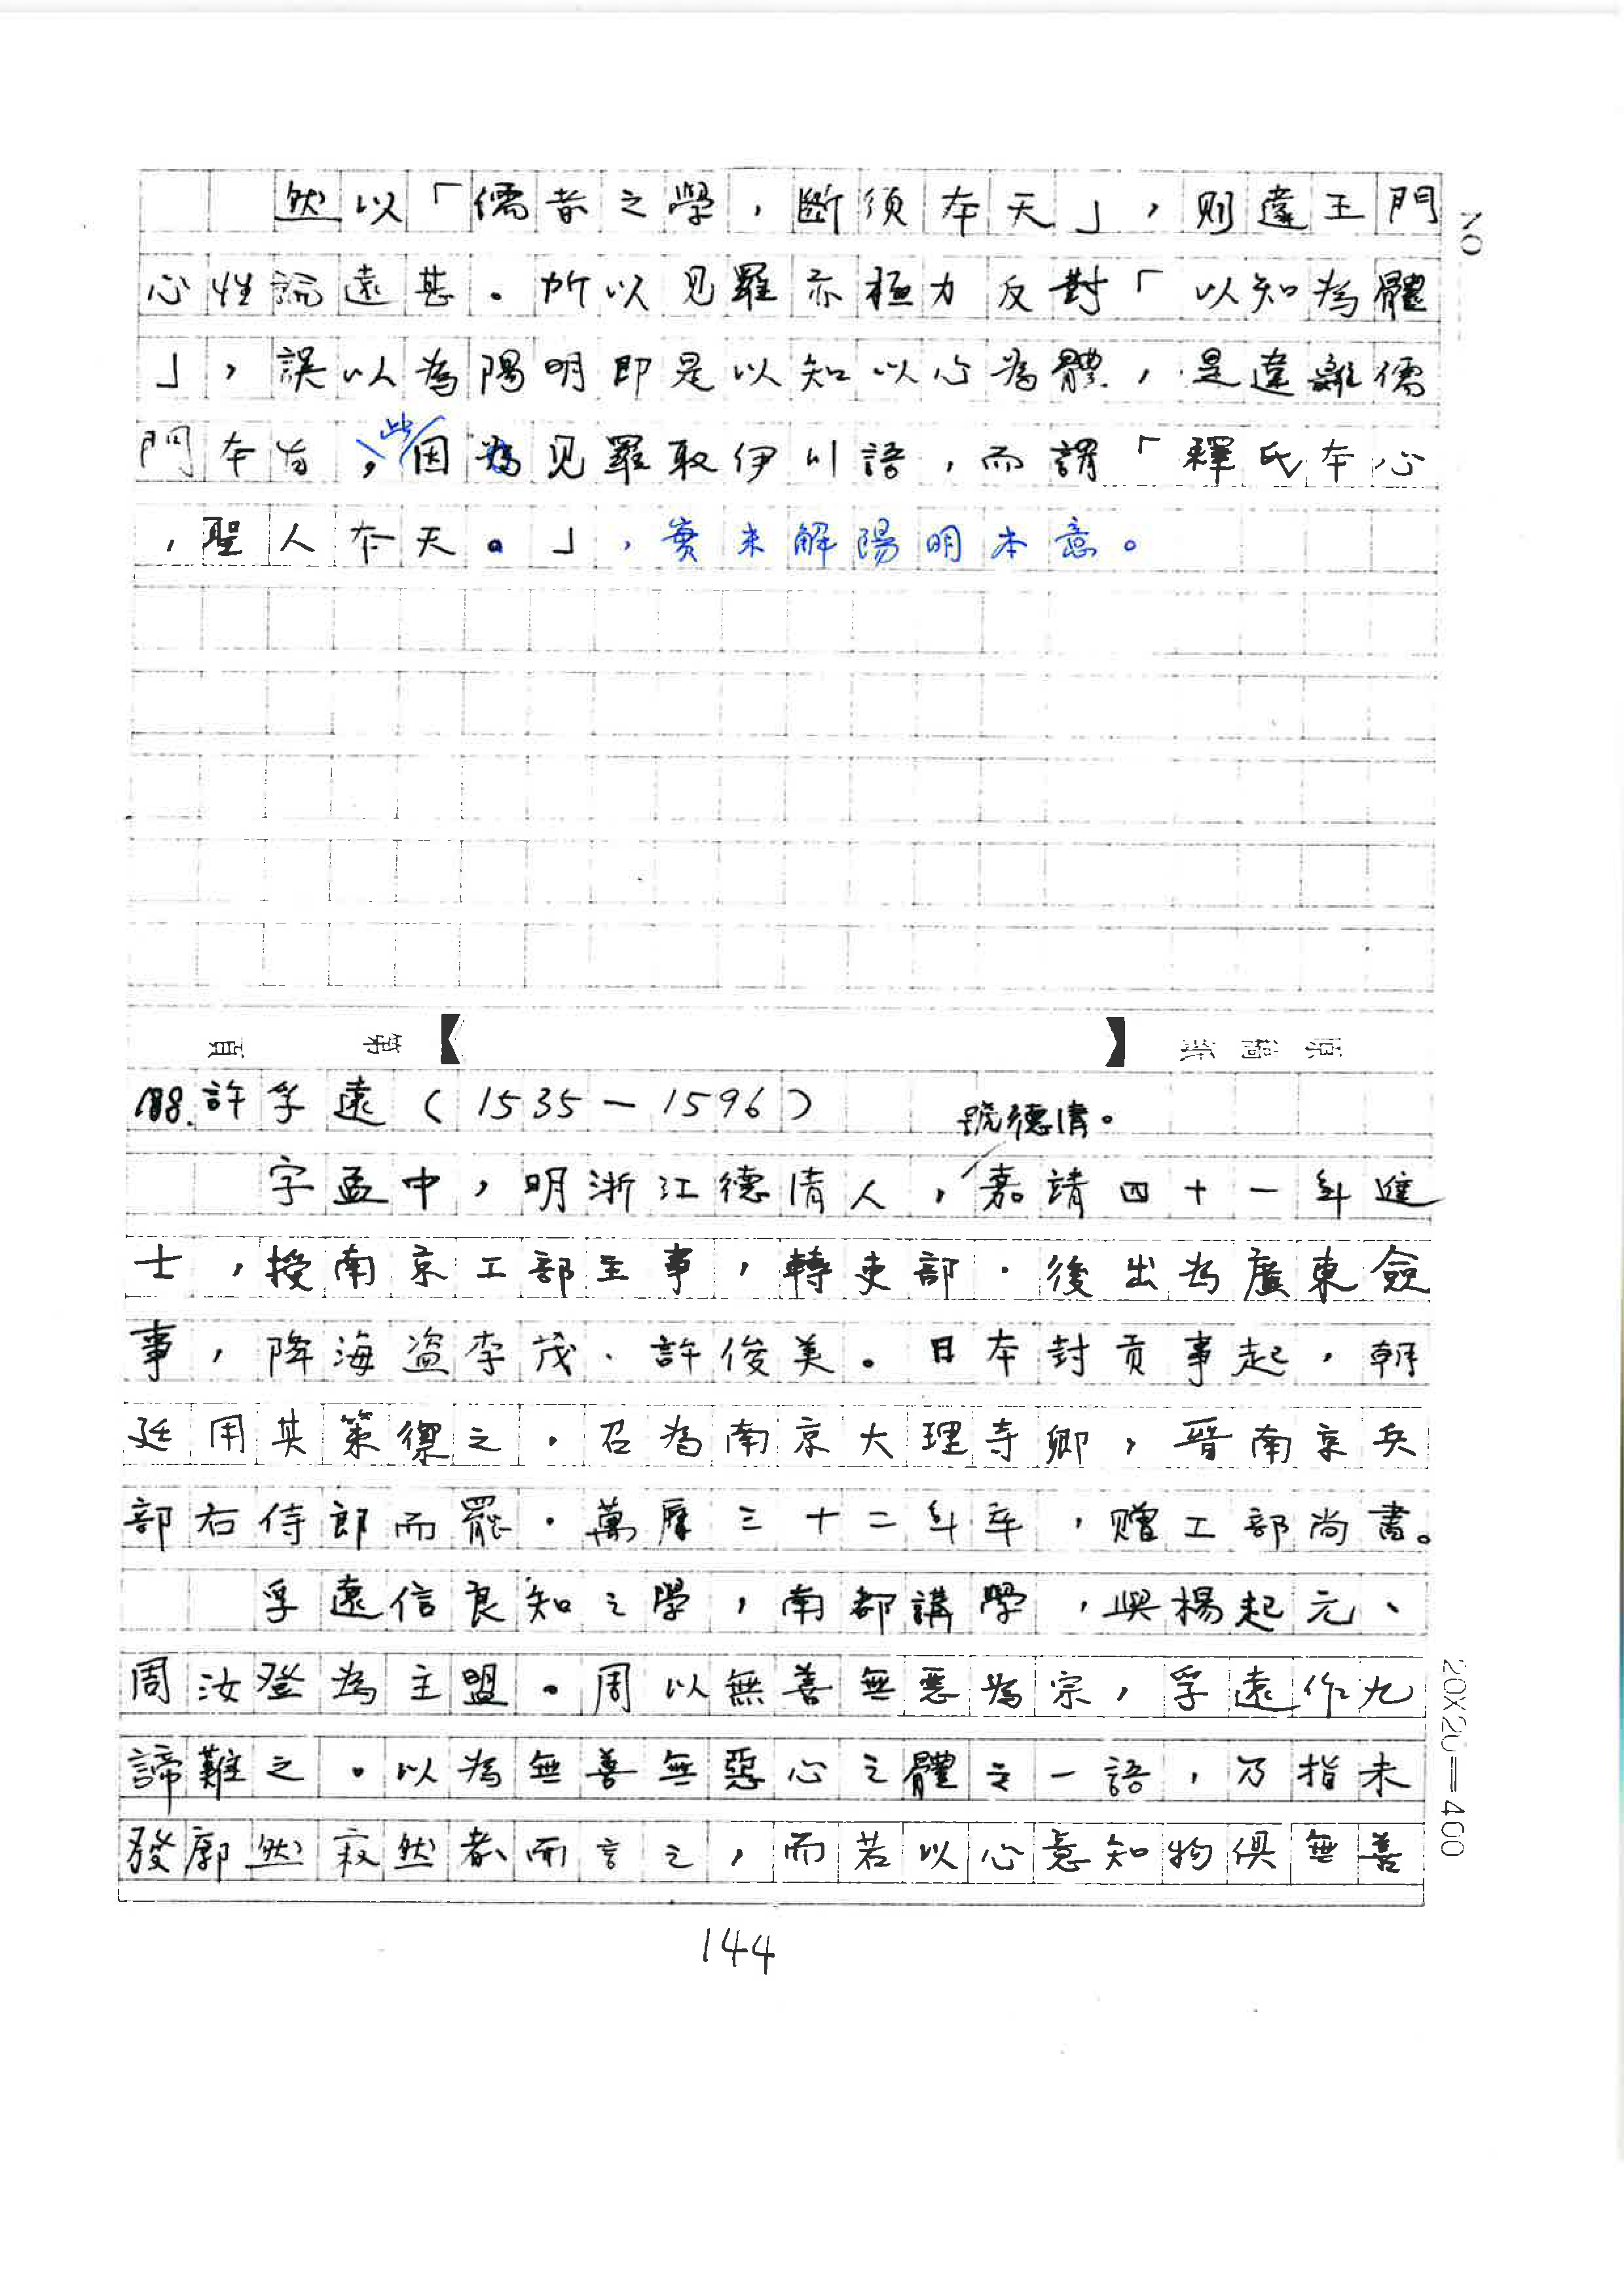 NO
然以「儒者之學，斷須本天」，則違王門
心性論遠甚。所以見羅亦極力反對「以知為體
」，誤以為陽明即是以知以心為體，是違離儒
門本旨，此因為見羅取伊川語，而謂「釋氏本心
，聖人本天。」，實未解陽明本意。
原稿紙 【 】 第 頁
188.許孚遠（1535－1596）
號德清。
字孟中，明浙江德清人，嘉靖四十一年進
士，授南京工部主事，轉吏部。後出為廣東僉
事，降海盜李茂、許俊美。日本封貢事起，朝
廷用其策禦之，召為南京大理寺卿，晉南京兵
部右侍郎而罷。萬曆三十二年卒，贈工部尚書。
孚遠信良知之學，南都講學，與楊起元、
周汝登為主盟。周以無善無惡為宗，孚遠作九
諦難之。以為無善無惡心之體之一語，乃指未
發廓然寂然者而言之，而若以心意知物俱無善
20X20=400
144